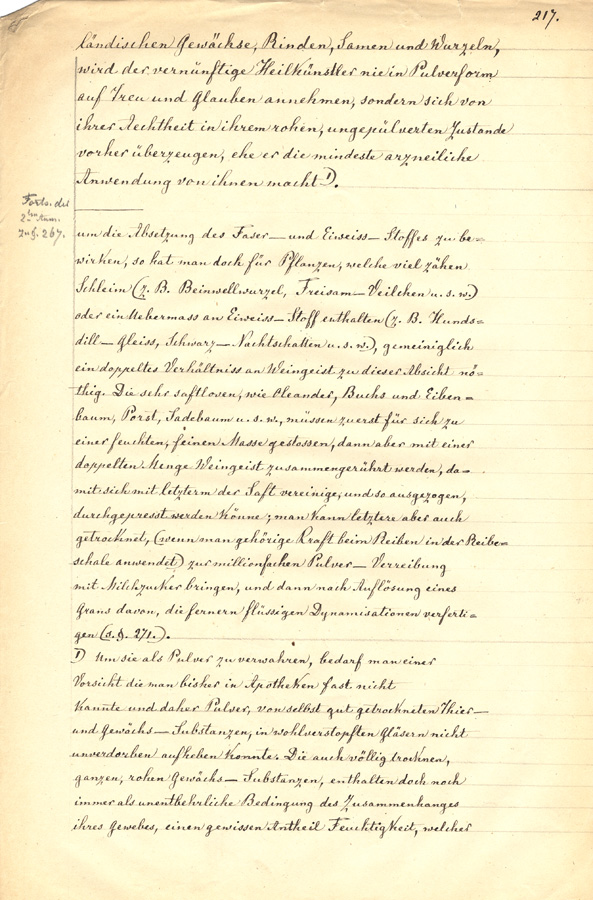 217.
ländischen Gewächse, Rinden, Samen und Wurzeln,
wird der vernünftige Heilkünstler nie in Pulverform
auf Treu und Glauben annehmen, sondern sich von
ihrer Aechtheit in ihrem rohen, ungepülverten Zustande
vorher überzeugen, ehe er die mindeste arzneiliche
Anwendung von ihnen macht 1).
Forts. der
2ten Anm.
zu §. 267.
um die Absetzung des Faser- und Eiweiss-Stoffes zu be=
wirken, so hat man doch für Pflanzen, welche viel zähen
Schleim (z. B. Beinwellwurzel, Freisam-Veilchen u. s. w.)
oder ein Uebermass an Eiweiss-Stoff enthalten (z. B. Hunds=
dill-Gleiss, Schwarz-Nachtschatten u. s. w.), gemeiniglich
ein doppeltes Verhältniss an Weingeist zu dieser Absicht nö=
thig. Die sehr saftlosen, wie Oleander, Buchs und Eiben=
baum, Porst, Sadebaum u. s. w., müssen zuerst für sich zu
einer feuchten, feinen Masse gestossen, dann aber mit einer
doppelten Menge Weingeist zusammengerührt werden, da-
mit sich mit letzterm der Saft vereinige, und so ausgezogen,
durchgepresst werden könne; man kann letztere aber auch
getrocknet, (wenn man gehörige Kraft beim Reiben in der Reibe=
schale anwendet) zur millionfachen Pulver-Verreibung
mit Milchzucker bringen, und dann nach Auflösung eines
Grans davon, die fernern flüssigen Dynamisationen verferti=
gen (s. §. 271.).
1) Um sie als Pulver zu verwahren, bedarf man einer
Vorsicht die man bisher in Apotheken fast nicht
kannte und daher Pulver, von selbst gut getrockneten Thier-
und Gewächs-Substanzen, in wohlverstopften Gläsern nicht
unverdorben aufheben konnte. Die auch völlig trocknen,
ganzen, rohen Gewächs-Substanzen, enthalten doch noch
immer als unentbehrliche Bedingung des Zusammenhanges
ihres Gewebes, einen gewissen Antheil Feuchtigkeit, welcher